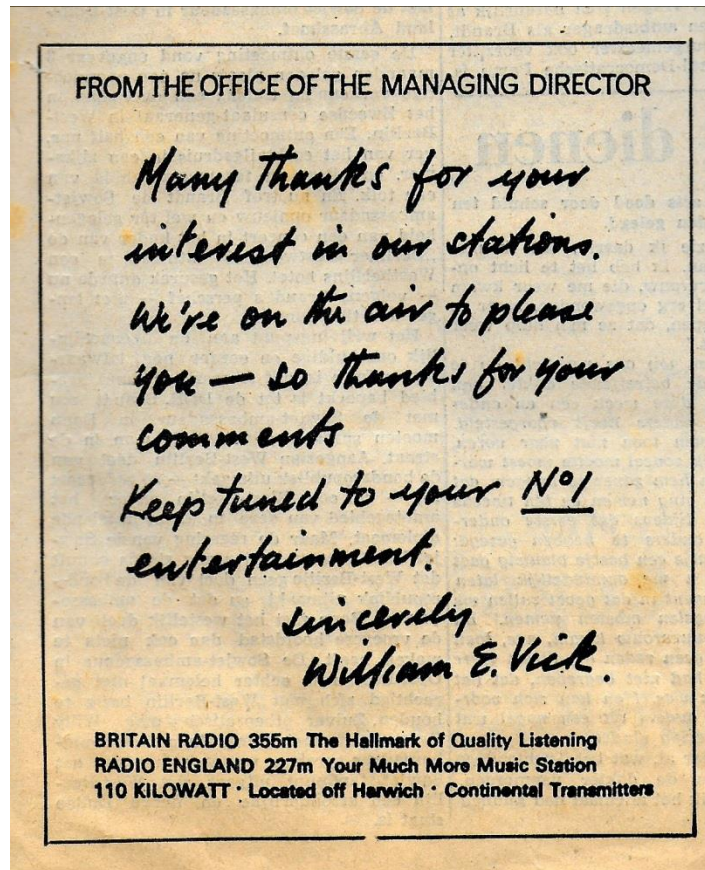 FROM THE OFFICE OF THE MANAGING DIRECTOR
Many thanks for your
interest in our stations.
We're on the air to please
you — so thanks for your
comments
Keep tuned to your No1
entertainment.
Sincerely
William E. Vick.
BRITAIN RADIO 355m The Hallmark of Quality Listening
RADIO ENGLAND 227m Your Much More Music Station
110 KILOWATT · Located off Harwich · Continental Transmitters